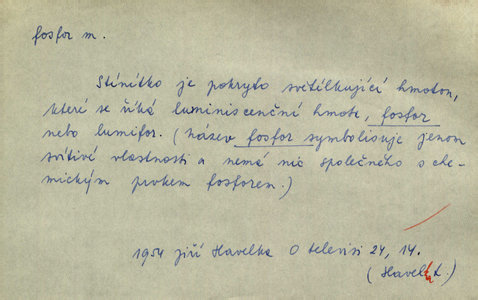 fosfor m.
Stínítko je pokryto světélkující hmotou,
které se říká luminiscenční hmota, fosfor
nebo lumifor. (Název fosfor symbolisuje jenom
svítivé vlastnosti a nemá nic společného s che-
mickým prvkem fosforem.)
1954 Jiří Havelka O televisi 24, 14.